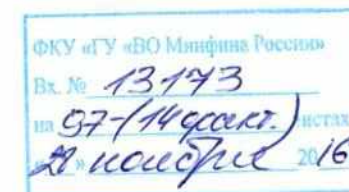 ФКУ «ГУ «ВО Минфина России»
Вх. № 13173
на 97-(14 факт.) листах
«28» ноября 2016